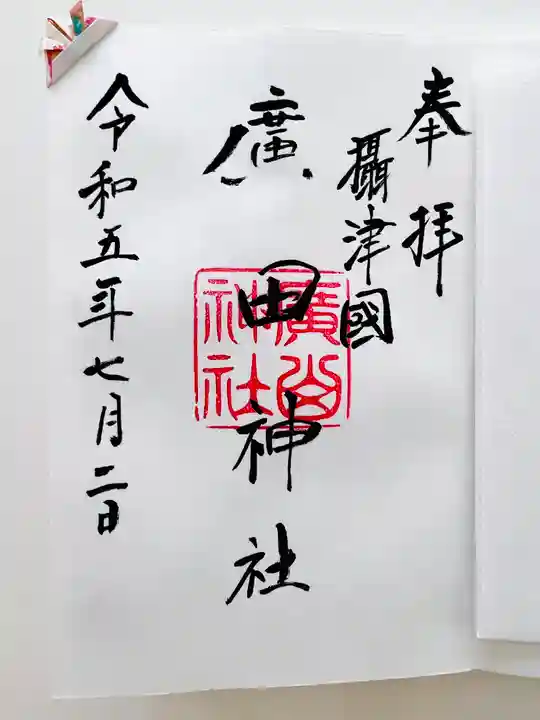 奉拝
攝津國
廣田神社
廣田
神社
令和五年七月二日